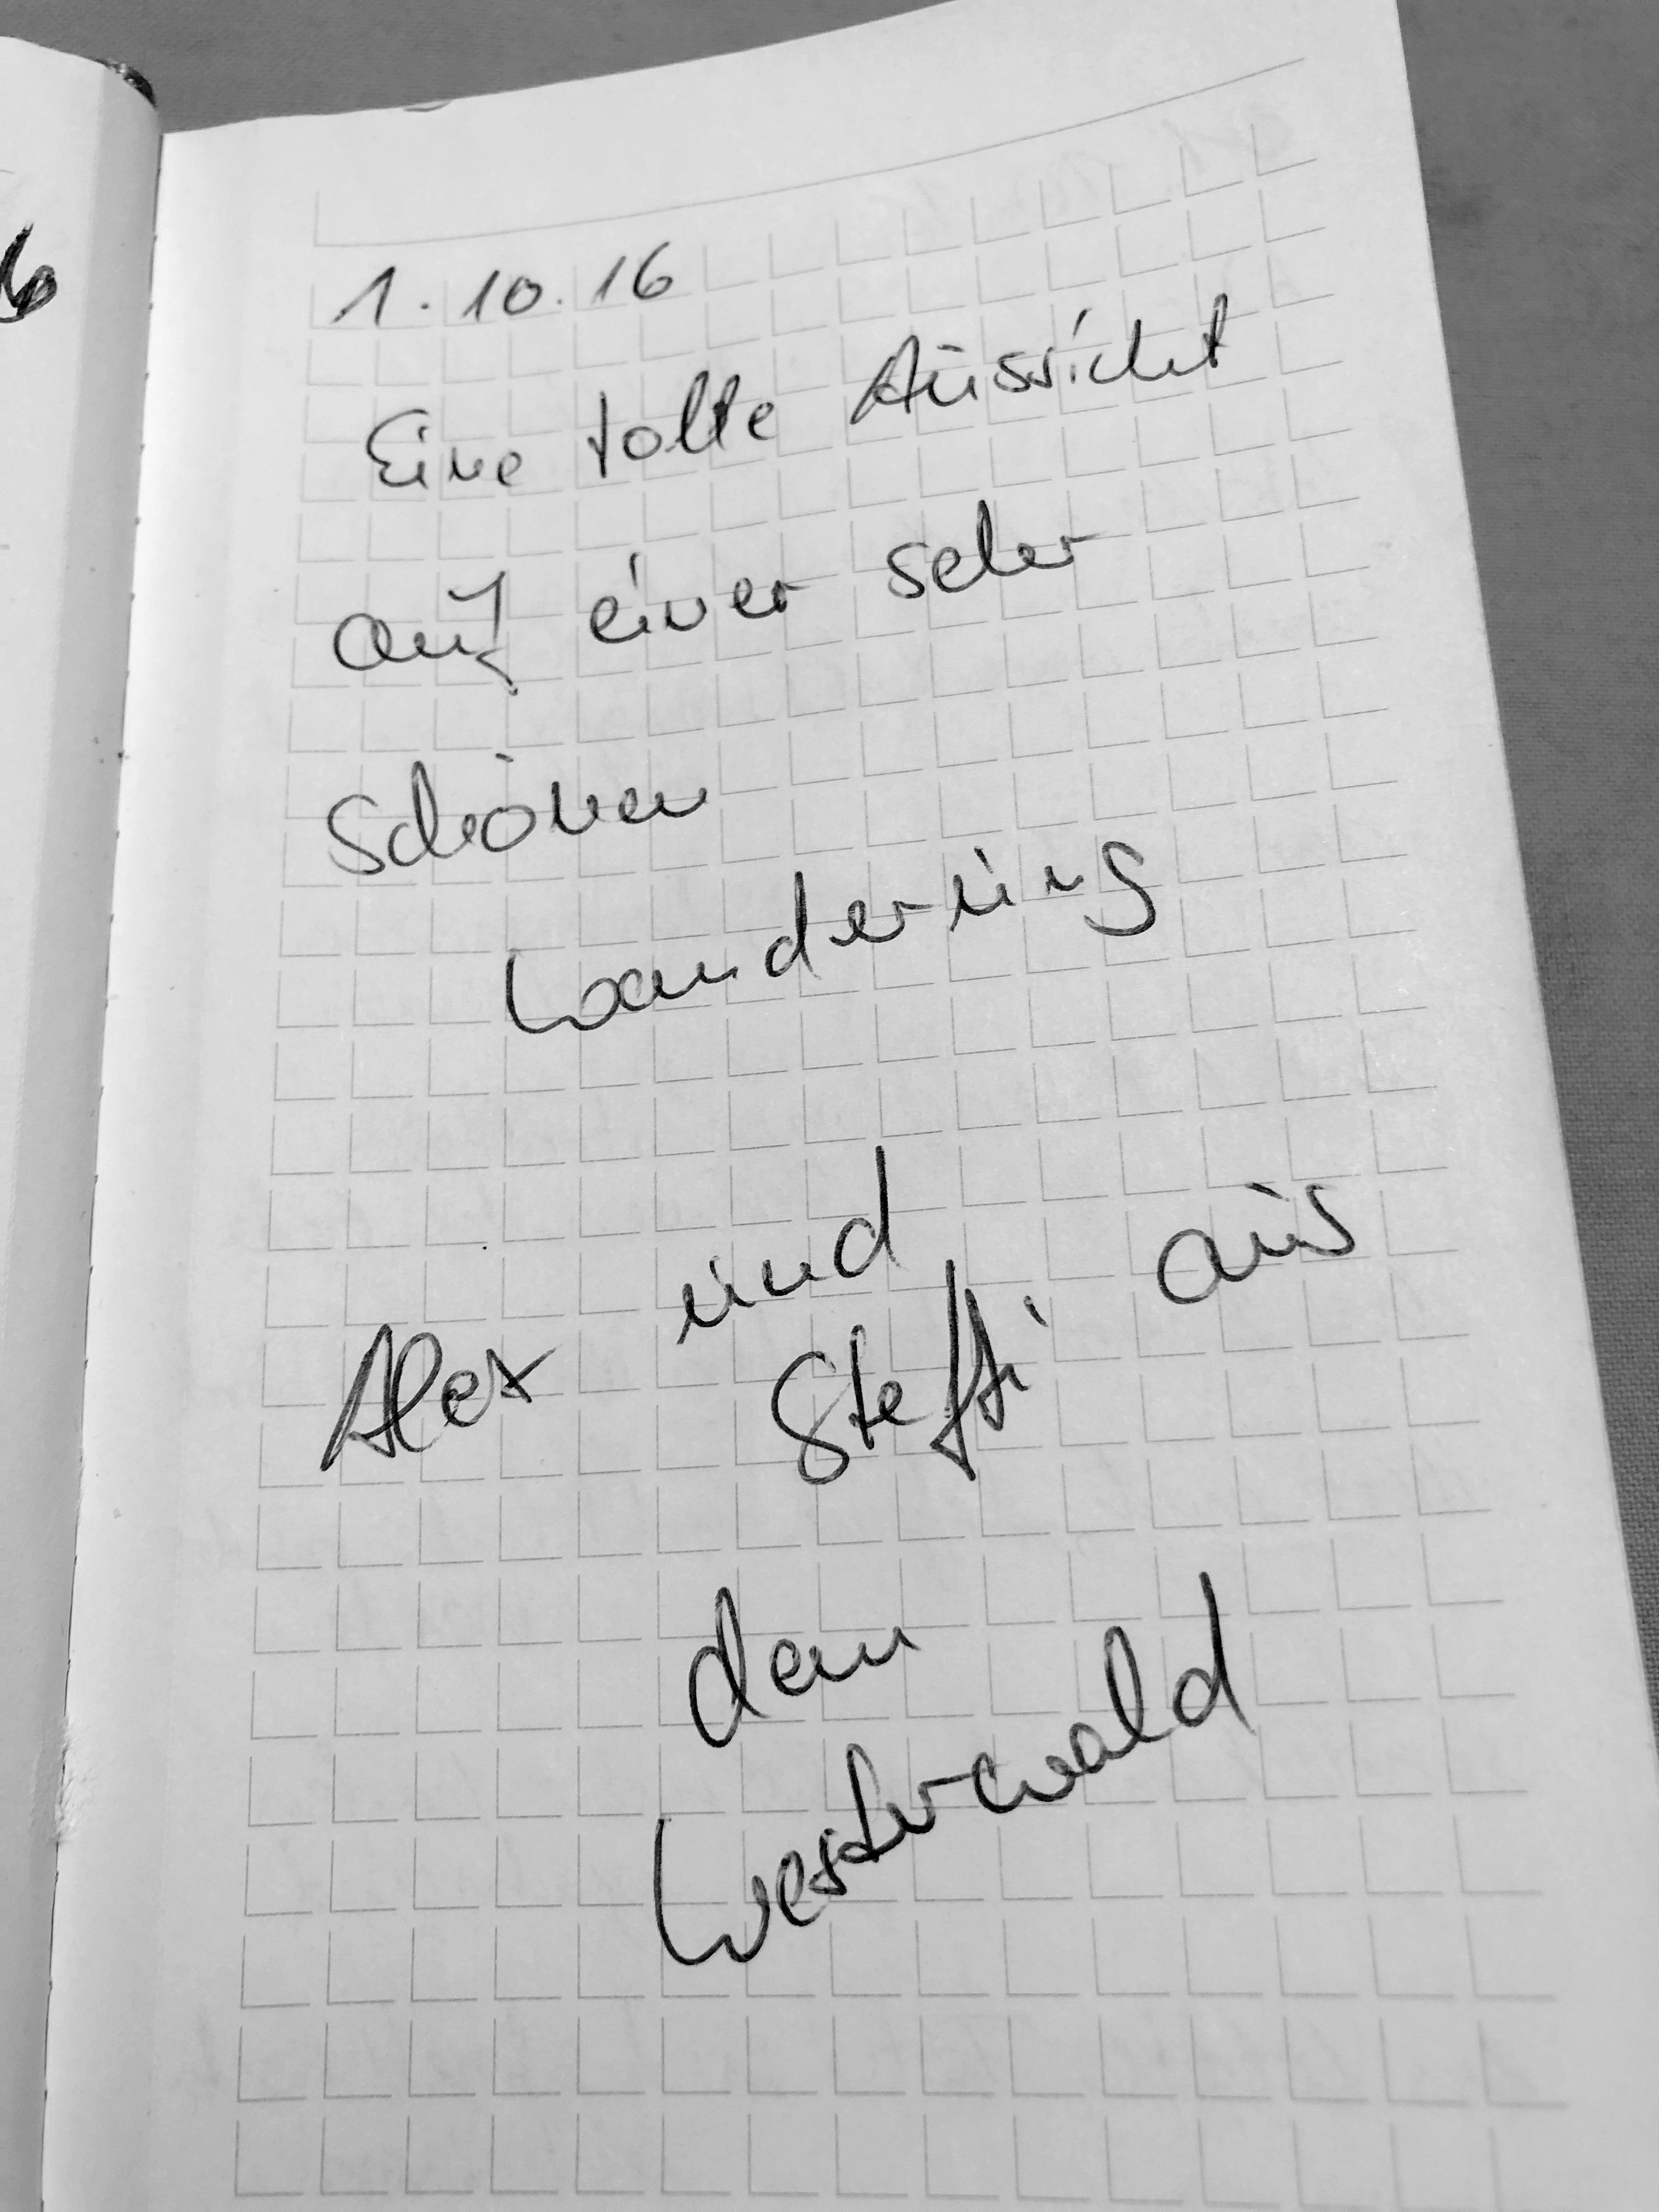 1.10.16
Eine tolle Aussicht
auf einer sehr
schönen
Wanderung
Alex und
Steffi aus
dem
Westerwald
6